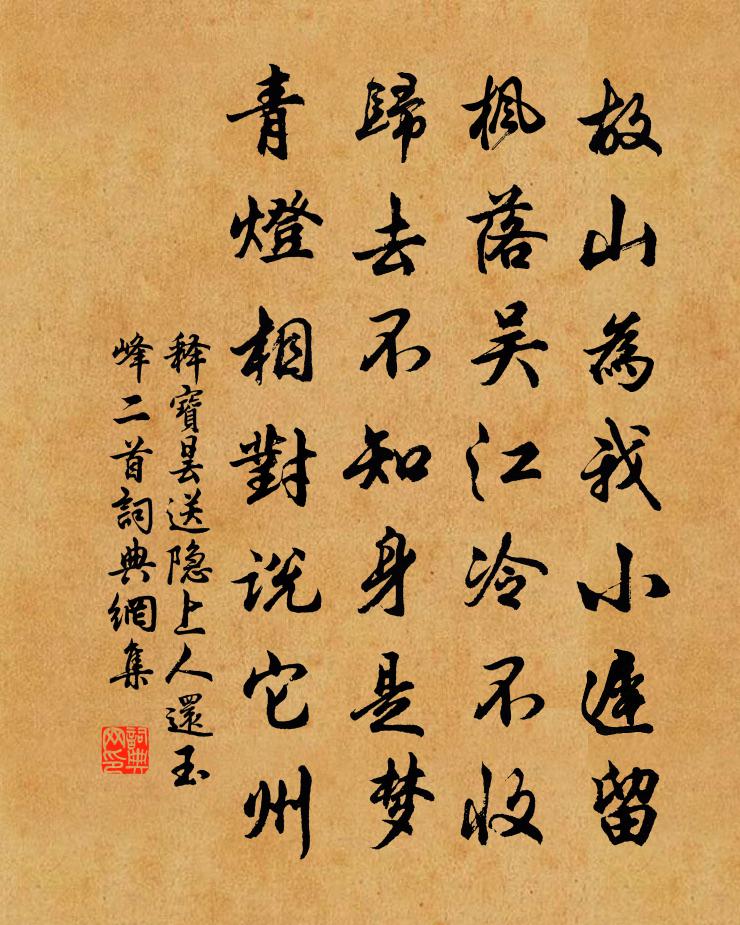 故山為我小遲留
楓落吴江冷不收
歸去不知身是梦
青燈相對説它州
释寶曇送隐上人還玉
峰二首詞典網集
詞典网印